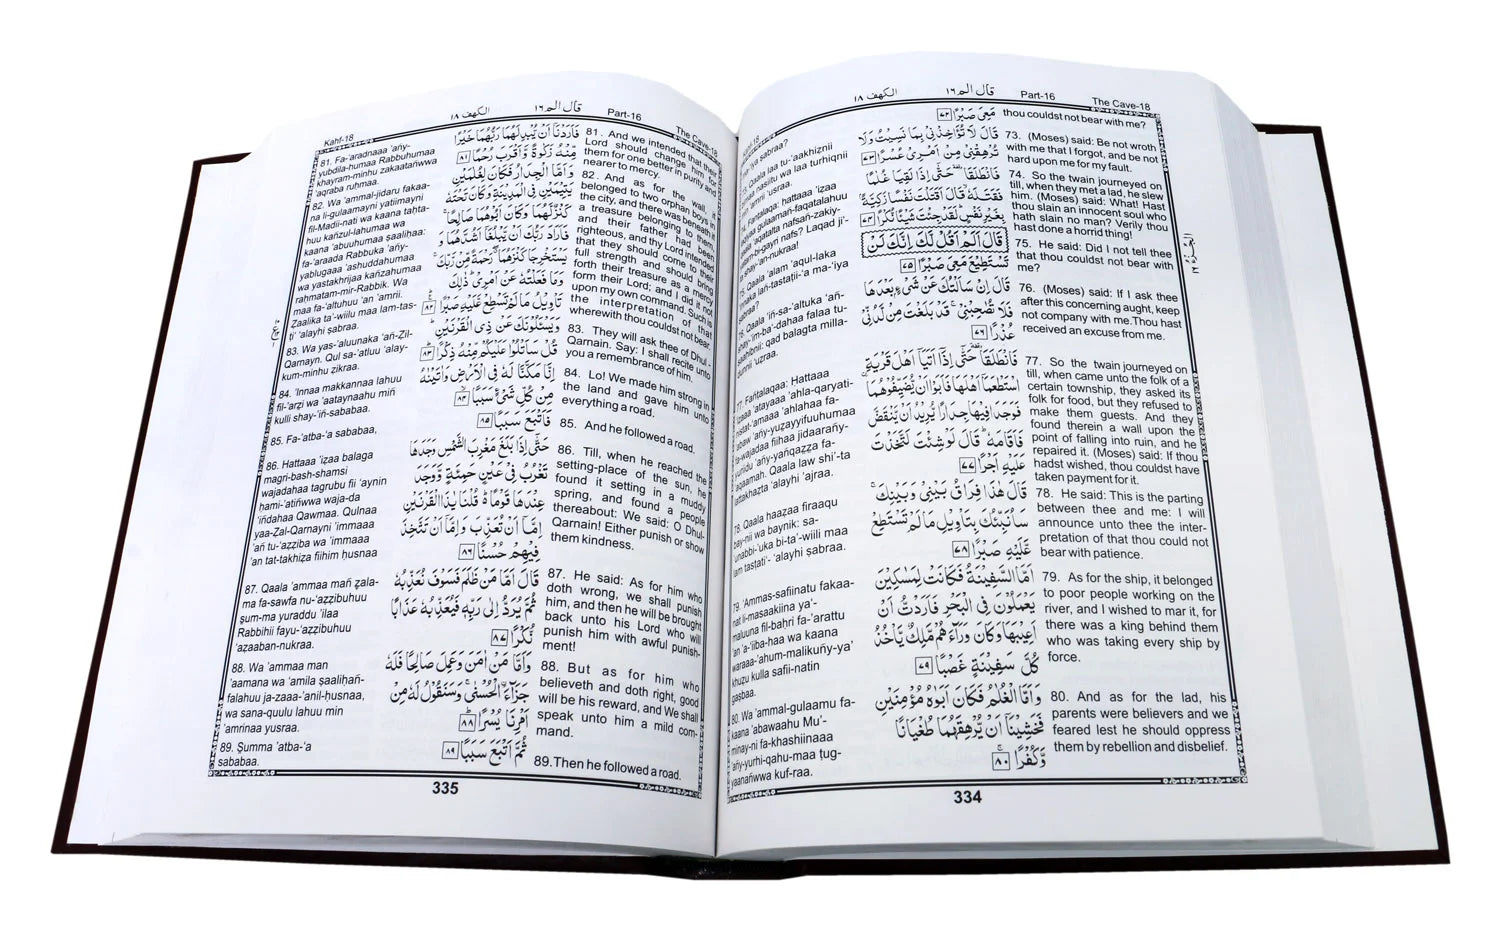 الكهف ١٨
قال الم ١٦
Part-16
The Cave-18
sabraa?
Qaala laa tu-'aakhiznii
nasiitu wa laa turhiqnii
'amrii 'usraa.
Fanṭalaqaa: hattaaa 'izaa
gulaamañ-faqatalahuu
'aqatalta nafsañ-zakiy-
tam-bi-gayri nafs? Laqad ji'-
ta shay-'an-nukraa!
75. Qaala 'alam 'aqul-laka
'innaka lañ-tastaṭii-'a ma-'iya
76. Qaala 'iñ-sa-'altuka 'añ-
shay-'im-ba'-dahaa falaa tu-
ṣaahibnii: qad balagta milla-
dunnii 'uẓraa.
77. Fañṭalaqaa: Hattaaa
'izaaa 'atayaaa 'ahla-qaryati-
nistaṭ-'amaaa 'ahlahaa fa-
'abaw 'añy-yuẓayyifuuhumaa
fa-wajadaa fiihaa jidaarañy-
yuriidu 'añy-yañqaẓẓa fa-
'aqaamah. Qaala law shi'-ta
lattakhaẓta 'alayhi 'ajraa.
78. Qaala haaẓaa firaaqu
bay-nii wa baynik: sa-
'unabbi-'uka bi-ta'-wiili maa
lam tastaṭi'- 'alayhi ṣabraa.
79. 'Ammas-safiinatu fakaa-
nat li-masaakiina ya'-
maluuna fil-baḥri fa-'arattu
'an 'a-'iiba-haa wa kaana
waraaa-'ahum-malikuñy-ya'
khuẓu kulla safii-natin
gasbaa.
80. Wa 'ammal-gulaamu fa-
kaana 'abawaahu Mu'-
minay-ni fa-khashiinaaa
'añy-yurhi-qahu-maa ṭug-
yaanañwwa kuf-raa.
مَعِيَ صَبْرًا ٧٢
قَالَ لَا تُؤَاخِذْنِي بِمَا نَسِيتُ وَلَا
تُرْهِقْنِي مِنْ أَمْرِي عُسْرًا ٧٣
فَانْطَلَقَا حَتَّى إِذَا لَقِيَا غُلَامًا
فَقَتَلَهُ قَالَ أَقَتَلْتَ نَفْسًا زَكِيَّةً
بِغَيْرِ نَفْسٍ لَقَدْ جِئْتَ شَيْئًا نُكْرًا ٧٤
قَالَ أَلَمْ أَقُلْ لَكَ إِنَّكَ لَنْ
تَسْتَطِيعَ مَعِيَ صَبْرًا ٧٥
قَالَ إِنْ سَأَلْتُكَ عَنْ شَيْءٍ بَعْدَهَا
فَلَا تُصَاحِبْنِي قَدْ بَلَغْتَ مِنْ لَدُنِّي
عُذْرًا ٧٦
فَانْطَلَقَا حَتَّى إِذَا أَتَيَا أَهْلَ قَرْيَةٍ
اسْتَطْعَمَا أَهْلَهَا فَأَبَوْا أَنْ يُضَيِّفُوهُمَا
فَوَجَدَا فِيهَا جِدَارًا يُرِيدُ أَنْ يَنْقَضَّ
فَأَقَامَهُ قَالَ لَوْ شِئْتَ لَتَّخَذْتَ
عَلَيْهِ أَجْرًا ٧٧
قَالَ هَذَا فِرَاقُ بَيْنِي وَبَيْنِكَ
سَأُنَبِّئُكَ بِتَأْوِيلِ مَا لَمْ تَسْتَطِعْ
عَلَيْهِ صَبْرًا ٧٨
أَمَّا السَّفِينَةُ فَكَانَتْ لِمَسَاكِينَ
يَعْمَلُونَ فِي الْبَحْرِ فَأَرَدْتُ أَنْ
أَعِيبَهَا وَكَانَ وَرَاءَهُمْ مَلِكٌ يَأْخُذُ
كُلَّ سَفِينَةٍ غَصْبًا ٧٩
وَأَمَّا الْغُلَامُ فَكَانَ أَبَوَاهُ مُؤْمِنَيْنِ
فَخَشِينَا أَنْ يُرْهِقَهُمَا طُغْيَانًا
وَكُفْرًا ٨٠
thou couldst not bear with me?
73. (Moses) said: Be not wroth
with me that I forgot, and be not
hard upon me for my fault.
74. So the twain journeyed on
till, when they met a lad, he slew
him. (Moses) said: What! Hast
thou slain an innocent soul who
hath slain no man? Verily thou
hast done a horrid thing!
75. He said: Did I not tell thee
that thou couldst not bear with
me?
76. (Moses) said: If I ask thee
after this concerning aught, keep
not company with me.Thou hast
received an excuse from me.
77. So the twain journeyed on
till, when came unto the folk of a
certain township, they asked its
folk for food, but they refused to
make them guests. And they
found therein a wall upon the
point of falling into ruin, and he
repaired it. (Moses) said: If thou
hadst wished, thou couldst have
taken payment for it.
78. He said: This is the parting
between thee and me: I will
announce unto thee the inter-
pretation of that thou could not
bear with patience.
79. As for the ship, it belonged
to poor people working on the
river, and I wished to mar it, for
there was a king behind them
who was taking every ship by
force.
80. And as for the lad, his
parents were believers and we
feared lest he should oppress
them by rebellion and disbelief.
334
Kahf-18
الكهف ١٨
قال الم ١٦
Part-16
The Cave-18
81. Fa-'aradnaaa 'añy-
yubdila-humaa Rabbuhumaa
khayram-minhu zakaatañwwa
'aqraba ruḥmaa.
82. Wa 'ammal-jidaru fakaa-
na li-gulaamayni yatiimayni
fil-Madii-nati wa kaana taḥta-
huu kañzul-lahumaa wa
kaana 'abuuhumaa ṣaaliḥaa:
fa-'araada Rabbuka 'añy-
yablugaaa 'ashuddahumaa
wa yastakhrijaa kañzahumaa
raḥmatam-mir-Rabbik. Wa
maa fa-'altuhuu 'an 'amrii.
Ẓaalika ta'-wiilu maa lam-tas-
ti' 'alayhi ṣabraa.
83. Wa yas-'aluunaka 'añ-Ẓil-
Qarnayn. Qul sa-'atluu 'alay-
kum-minhu ẓikraa.
84. 'Innaa makkannaa lahuu
fil-'arẓi wa 'aataynaahu miñ
kulli shay-'iñ-sababaa.
85. Fa-'atba-'a sababaa,
86. Hattaaa 'iẓaa balaga
magri-bash-shamsi
wajadahaa tagrubu fii 'aynin
ḥami-'atiñwwa waja-da
'iñdahaa Qawmaa. Qulnaa
yaa-Ẓal-Qarnayni 'immaaa
'añ tu-'aẓẓiba wa 'immaaa
'an tat-takhiẓa fiihim ḥusnaa
87. Qaala 'ammaa mañ ẓala-
ma fa-sawfa nu-'aẓẓibuhuu
ṣum-ma yuraddu 'ilaa
Rabbihii fayu-'aẓẓibuhuu
'aẓaaban-nukraa.
88. Wa 'ammaa man
'aamana wa 'amila ṣaaliḥañ-
falahuu ja-zaaa-'anil-ḥusnaa,
wa sana-quulu lahuu min
'amrinaa yusraa.
89. Ṣumma 'atba-'a
sababaa.
فَأَرَدْنَا أَنْ يُبْدِلَهُمَا رَبُّهُمَا خَيْرًا
مِنْهُ زَكَاةً وَأَقْرَبَ رُحْمًا ٨١
وَأَمَّا الْجِدَارُ فَكَانَ لِغُلَامَيْنِ
يَتِيمَيْنِ فِي الْمَدِينَةِ وَكَانَ تَحْتَهُ
كَنْزٌ لَهُمَا وَكَانَ أَبُوهُمَا صَالِحًا
فَأَرَادَ رَبُّكَ أَنْ يَبْلُغَا أَشُدَّهُمَا وَ
يَسْتَخْرِجَا كَنْزَهُمَا رَحْمَةً مِنْ رَبِّكَ
وَمَا فَعَلْتُهُ عَنْ أَمْرِي ذَلِكَ
تَأْوِيلُ مَا لَمْ تَسْطِعْ عَلَيْهِ صَبْرًا ٨٢
وَيَسْأَلُونَكَ عَنْ ذِي الْقَرْنَيْنِ
قُلْ سَأَتْلُو عَلَيْكُمْ مِنْهُ ذِكْرًا ٨٣
إِنَّا مَكَّنَّا لَهُ فِي الْأَرْضِ وَآتَيْنَاهُ
مِنْ كُلِّ شَيْءٍ سَبَبًا ٨٤
فَأَتْبَعَ سَبَبًا ٨٥
حَتَّى إِذَا بَلَغَ مَغْرِبَ الشَّمْسِ وَجَدَهَا
تَغْرُبُ فِي عَيْنٍ حَمِئَةٍ وَوَجَدَ
عِنْدَهَا قَوْمًا قُلْنَا يَا ذَا الْقَرْنَيْنِ
إِمَّا أَنْ تُعَذِّبَ وَإِمَّا أَنْ تَتَّخِذَ
فِيهِمْ حُسْنًا ٨٦
قَالَ أَمَّا مَنْ ظَلَمَ فَسَوْفَ نُعَذِّبُهُ
ثُمَّ يُرَدُّ إِلَى رَبِّهِ فَيُعَذِّبُهُ عَذَابًا
نُكْرًا ٨٧
وَأَمَّا مَنْ آمَنَ وَعَمِلَ صَالِحًا فَلَهُ
جَزَاءً الْحُسْنَى وَسَنَقُولُ لَهُ مِنْ
أَمْرِنَا يُسْرًا ٨٨
ثُمَّ أَتْبَعَ سَبَبًا ٨٩
81. And we intended that their
Lord should change him for
them for one better in purity and
nearer to mercy.
82. And as for the wall, it
belonged to two orphan boys in
the city, and there was beneath it
a treasure belonging to them
and their father had been
righteous, and thy Lord intended
that they should come to their
full strength and should bring
forth their treasure as a mercy
form their Lord; and I did it not
upon my own command. Such is
the interpretation of that
wherewith thou couldst not bear.
83. They will ask thee of Dhul -
Qarnain. Say: I shall recite unto
you a remembrance of him.
84. Lo! We made him strong in
the land and gave him unto
everything a road.
85. And he followed a road.
86. Till, when he reached the
setting-place of the sun, he
found it setting in a muddy
spring, and found a people
thereabout: We said: O Dhul-
Qarnain! Either punish or show
them kindness.
87. He said: As for him who
doth wrong, we shall punish
him, and then he will be brought
back unto his Lord who will
punish him with awful punish-
ment!
88. But as for him who
believeth and doth right, good
will be his reward, and We shall
speak unto him a mild com-
mand.
89.Then he followed a road.
335